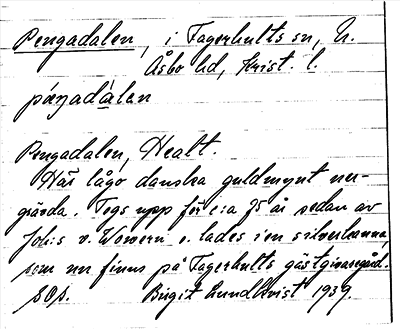 Pengadalen, i Fagerhults sn, N.
Åsbo hd, Krist. l.
päŋadàlan
Pengadalen, Healt.
Här lågo danska guldmynt ner-
gävda. Togs upp för c:a 75 år sedan av
Joh:s v. Wowern o. lades i en silverkanna,
som nu finns på Fagerhults gästgivaregård.
SOA. Birgit Lundkvist 1939.